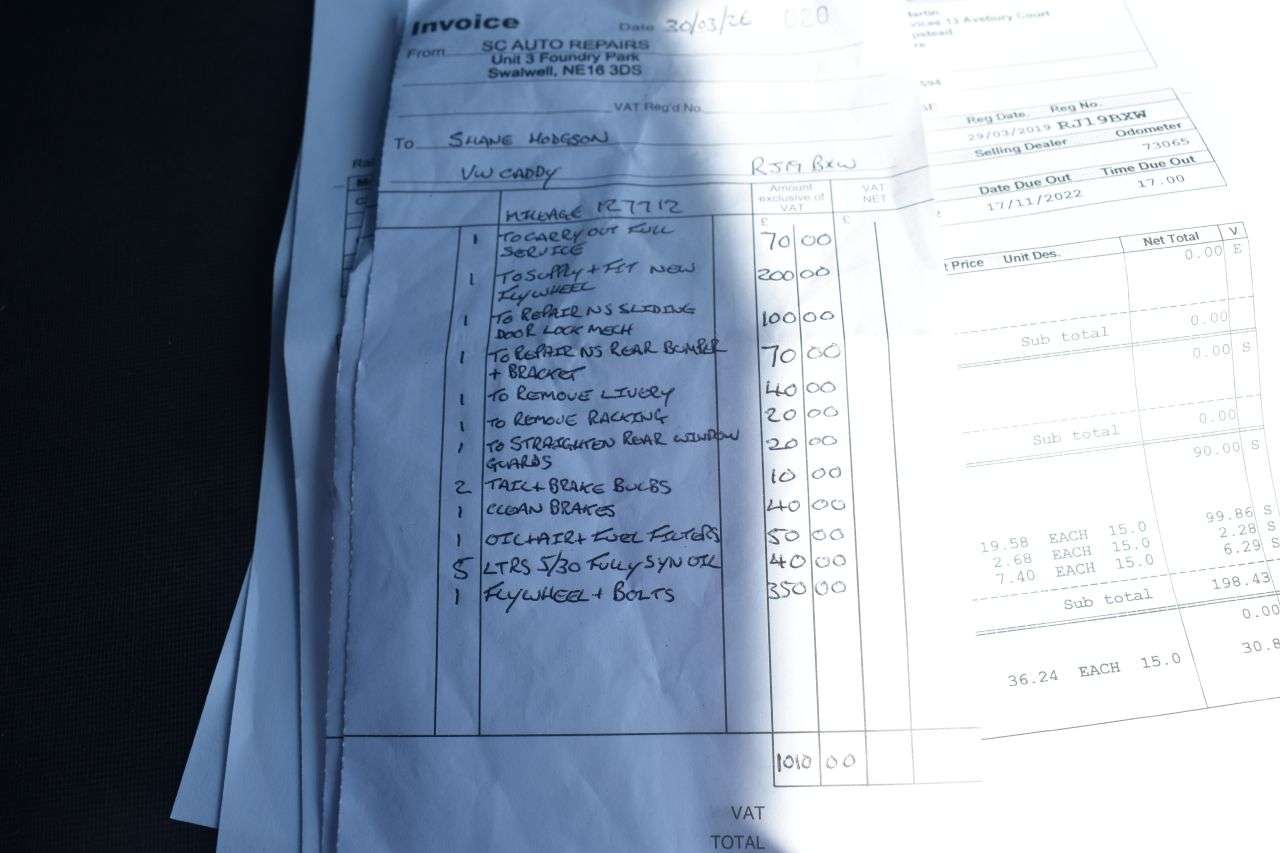 Invoice
Date 30/03/26 020
From SC AUTO REPAIRS
Unit 3 Foundry Park
Swalwell, NE16 3DS
VAT Reg'd No.
To SHANE HODGSON
VW CADDY RJ19 BXW
Amount exclusive of VAT
VAT NET
MILEAGE 127712
£ £
1 TO CARRY OUT FULL 70 00
SERVICE
1 TO SUPPLY + FIT NEW 200 00
FLYWHEEL
1 TO REPAIR NS SLIDING 100 00
DOOR LOCK MECH
1 TO REPAIR NS REAR BUMPER 70 00
+ BRACKET
1 TO REMOVE LIVERY 40 00
1 TO REMOVE RACKING 20 00
1 TO STRAIGHTEN REAR WINDOW 20 00
GUARDS
2 TAIL + BRAKE BULBS 10 00
1 CLEAN BRAKES 40 00
1 OIL + AIR + FUEL FILTERS 50 00
5 LTRS 5/30 FULLY SYN OIL 40 00
1 FLYWHEEL + BOLTS 350 00
1010 00
VAT
TOTAL
13 Avebury Court
Reg Date. Reg No.
29/03/2019 RJ19BXW
Selling Dealer Odometer
73065
Date Due Out Time Due Out
17/11/2022 17.00
Price Unit Des. Net Total V
0.00 E
Sub total 0.00
0.00 S
Sub total 0.00
90.00 S
19.58 EACH 15.0 99.86 S
2.68 EACH 15.0 2.28 S
7.40 EACH 15.0 6.29 S
Sub total 198.43
0.00
36.24 EACH 15.0 30.8